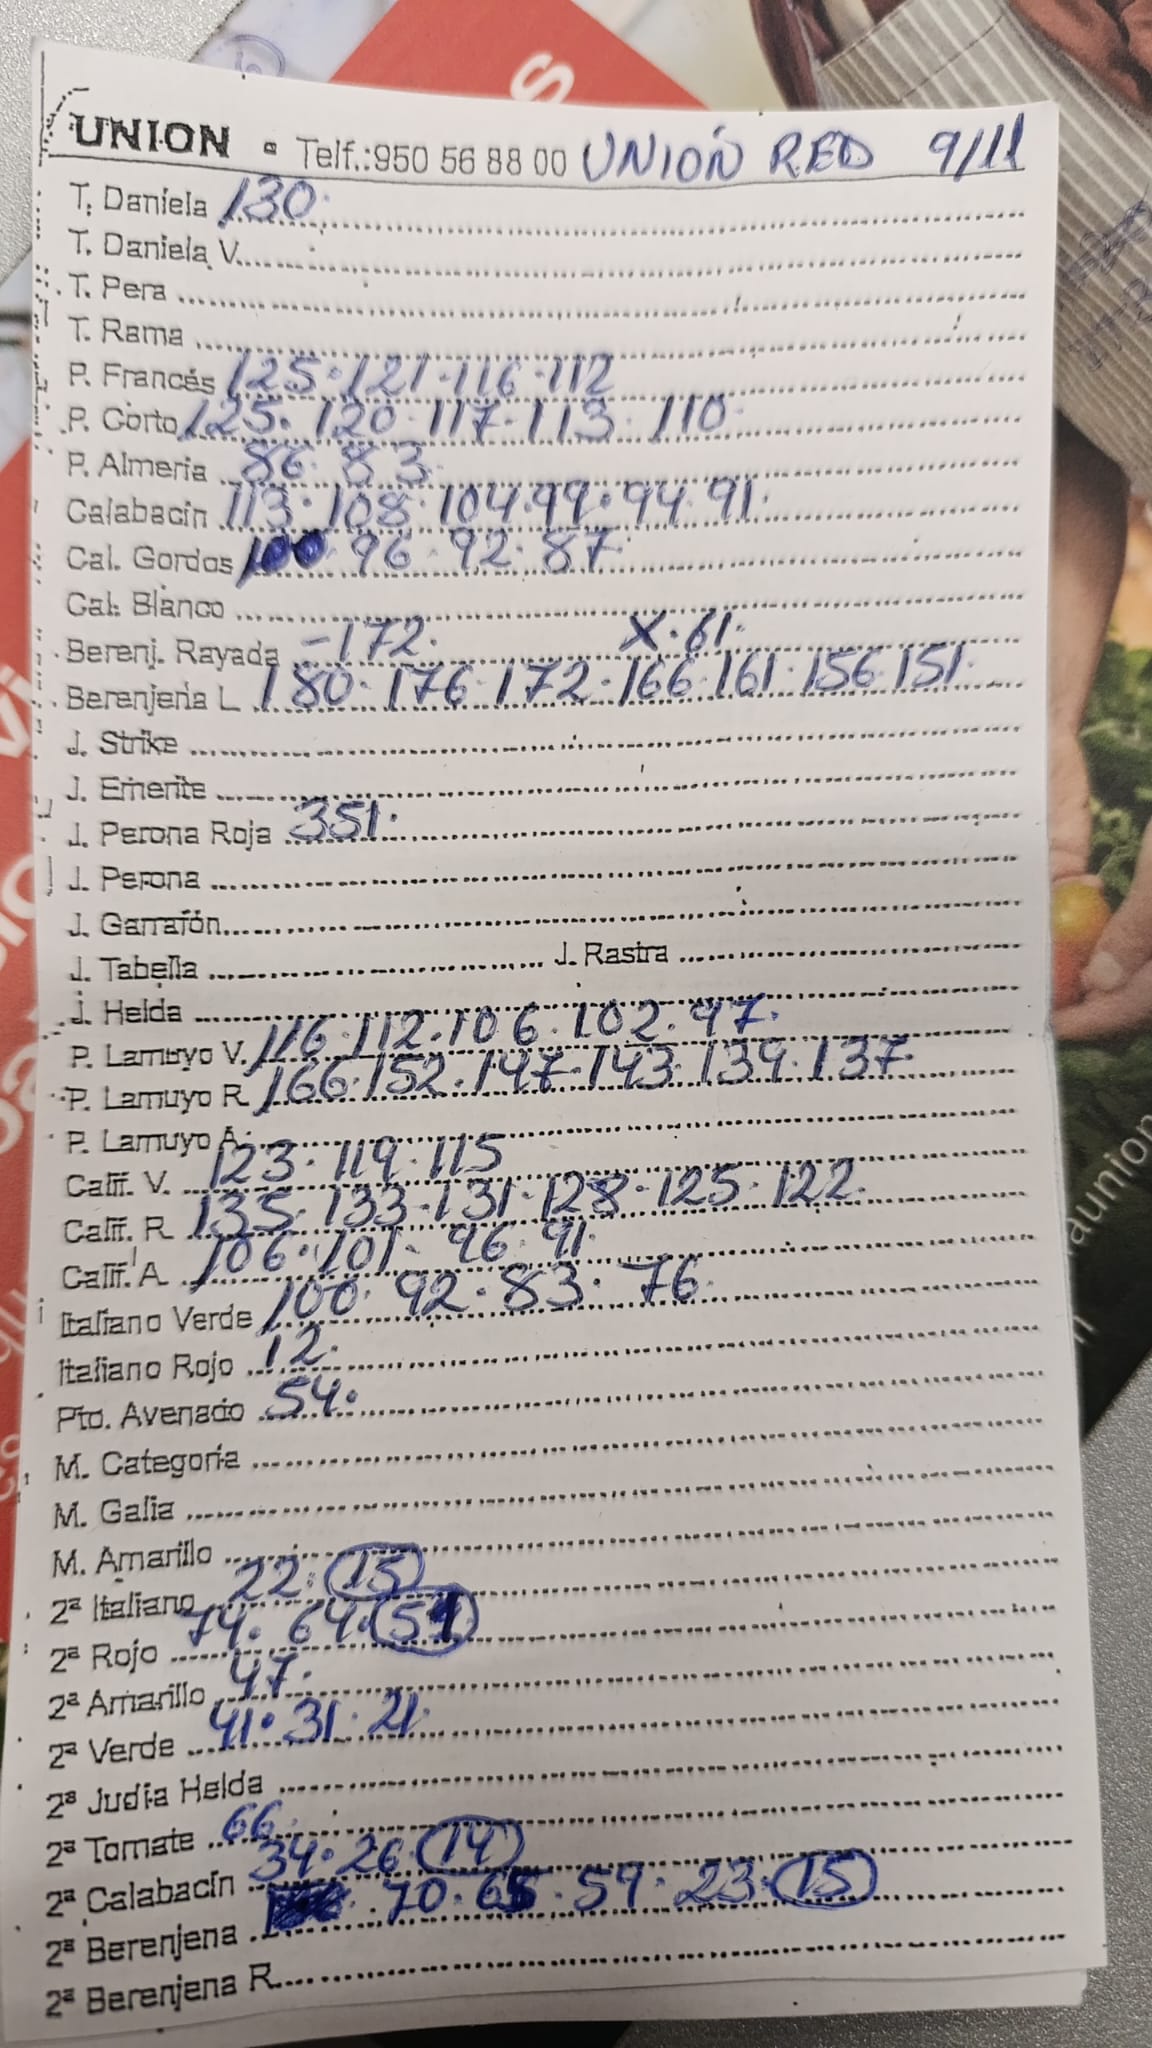 UNION - Telf.:950 56 88 00 UNIÓN RED 9/11
T. Daniela 130.
T. Daniela V.
T. Pera
T. Rama
P. Francés 125.121.116.112
P. Corto 125. 120.117.113.110.
P. Almeria 86.83.
Calabacín 113.108.104.99.94.91.
Cal. Gordos 100.96.92.87.
Cal. Blanco
Berenj. Rayada -172. X.61.
Berenjena L. 180.176.172.166.161.156.151.
J. Strike
J. Emerite
J. Perona Roja 351.
J. Perona
J. Garrafón
J. Tabella J. Rastra
J. Helda
P. Lamuyo V. 116.112.106.102.97.
P. Lamuyo R. 166.152.147.143.139.137.
P. Lamuyo A.
Calif. V. 123.119.115
Calif. R. 135.133.131.128.125.122.
Calif. A. 106.101.96.91.
Italiano Verde 100.92.83.76.
Italiano Rojo 12.
Pto. Avenado 54.
M. Categoría
M. Galia
M. Amarillo
2ª Italiano 22. 15
2ª Rojo 74. 64.
2ª Amarillo 47.
2ª Verde 41.31.21.
2ª Judía Helda
2ª Tomate 66.
2ª Calabacín 34.26. 14
2ª Berenjena .70. .59.23. 15
2ª Berenjena R.
aunion